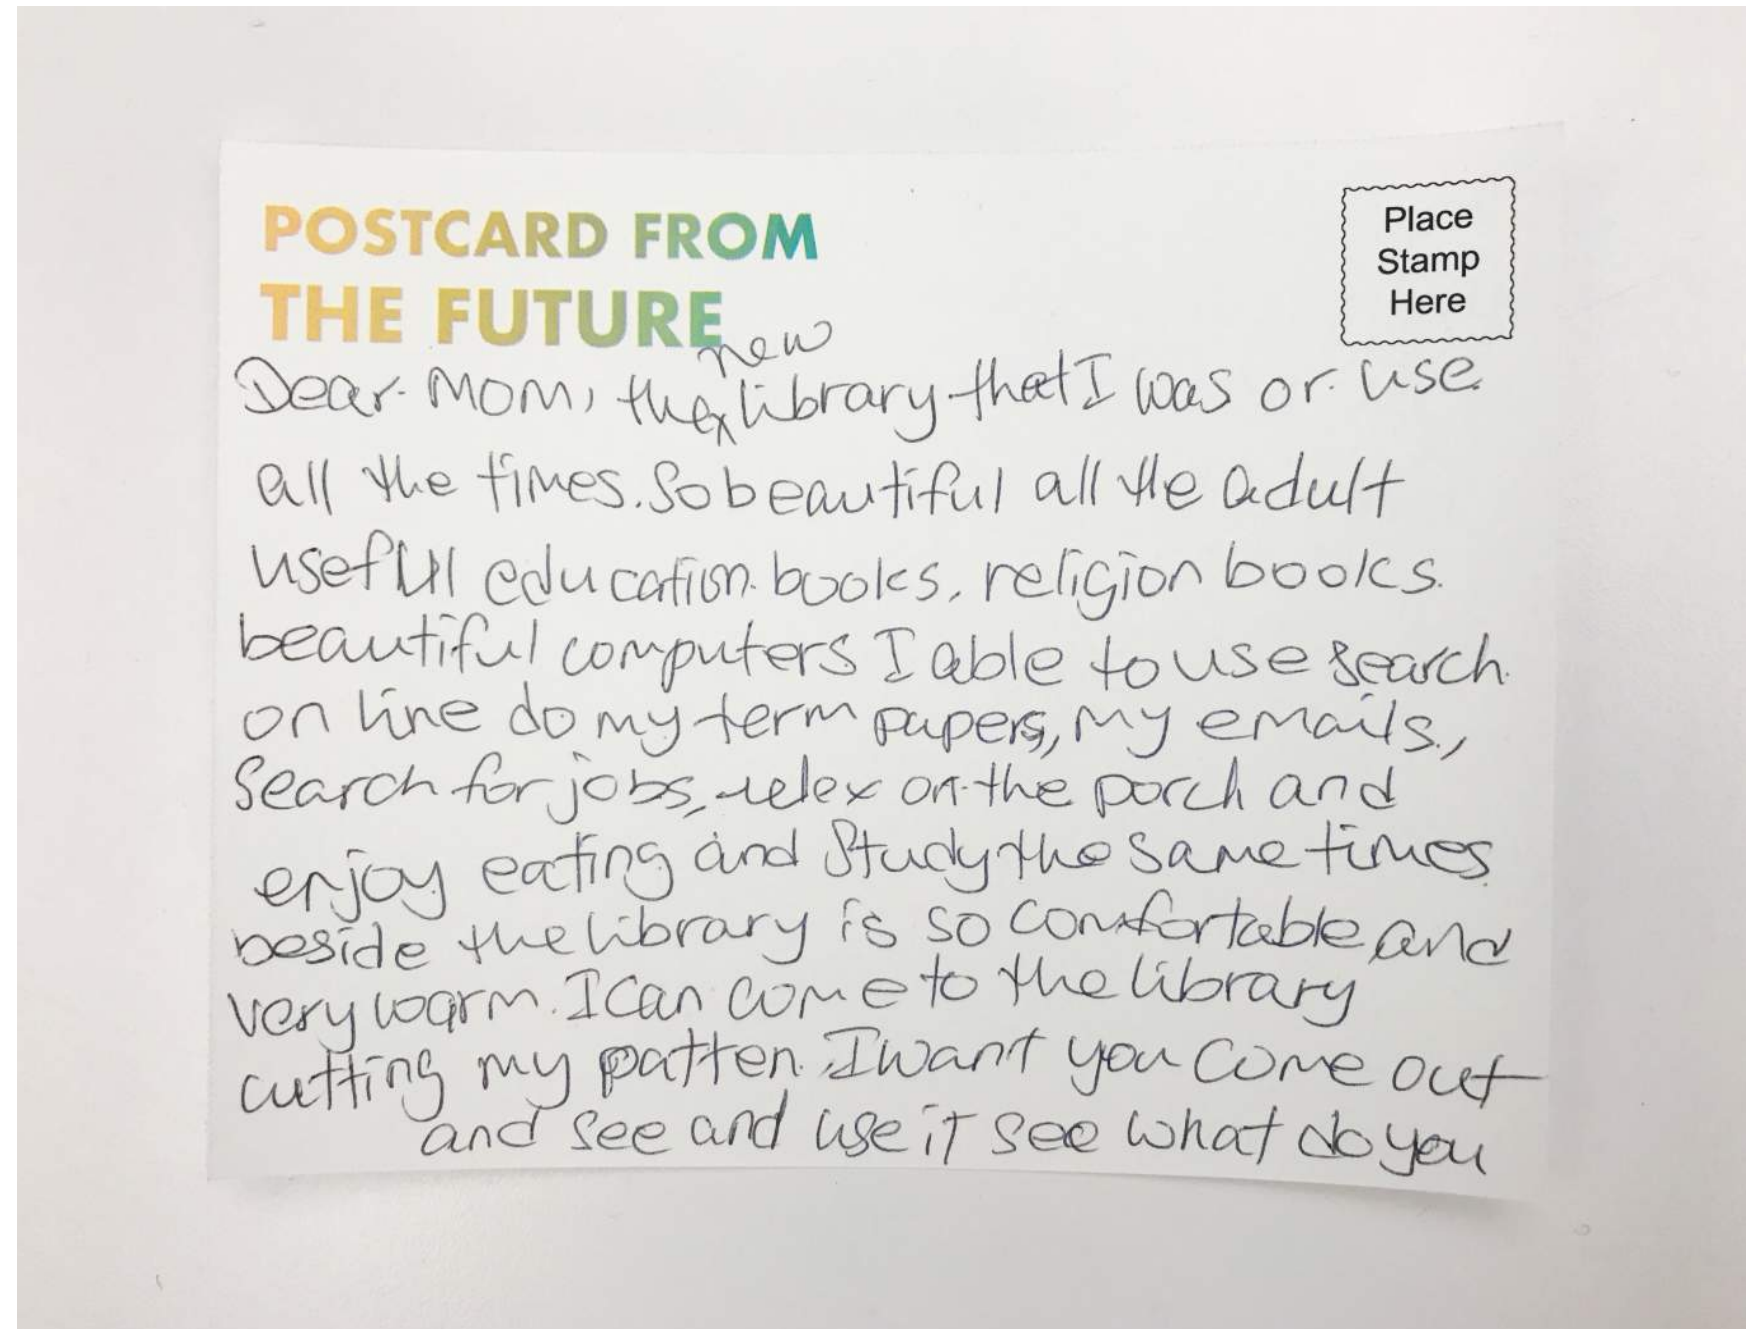 POSTCARD FROM
THE FUTURE
Place
Stamp
Here
new
Dear Mom, the library that I was or use
all the times. So beautiful all the adult
useful education books, religion books.
beautiful computers I able to use search
on line do my term papers, my emails,
search for jobs, relex on the porch and
enjoy eating and study the same times
beside the library is so comfortable and
very warm. I can come to the library
cutting my patten. I want you come out
and see and use it see what do you